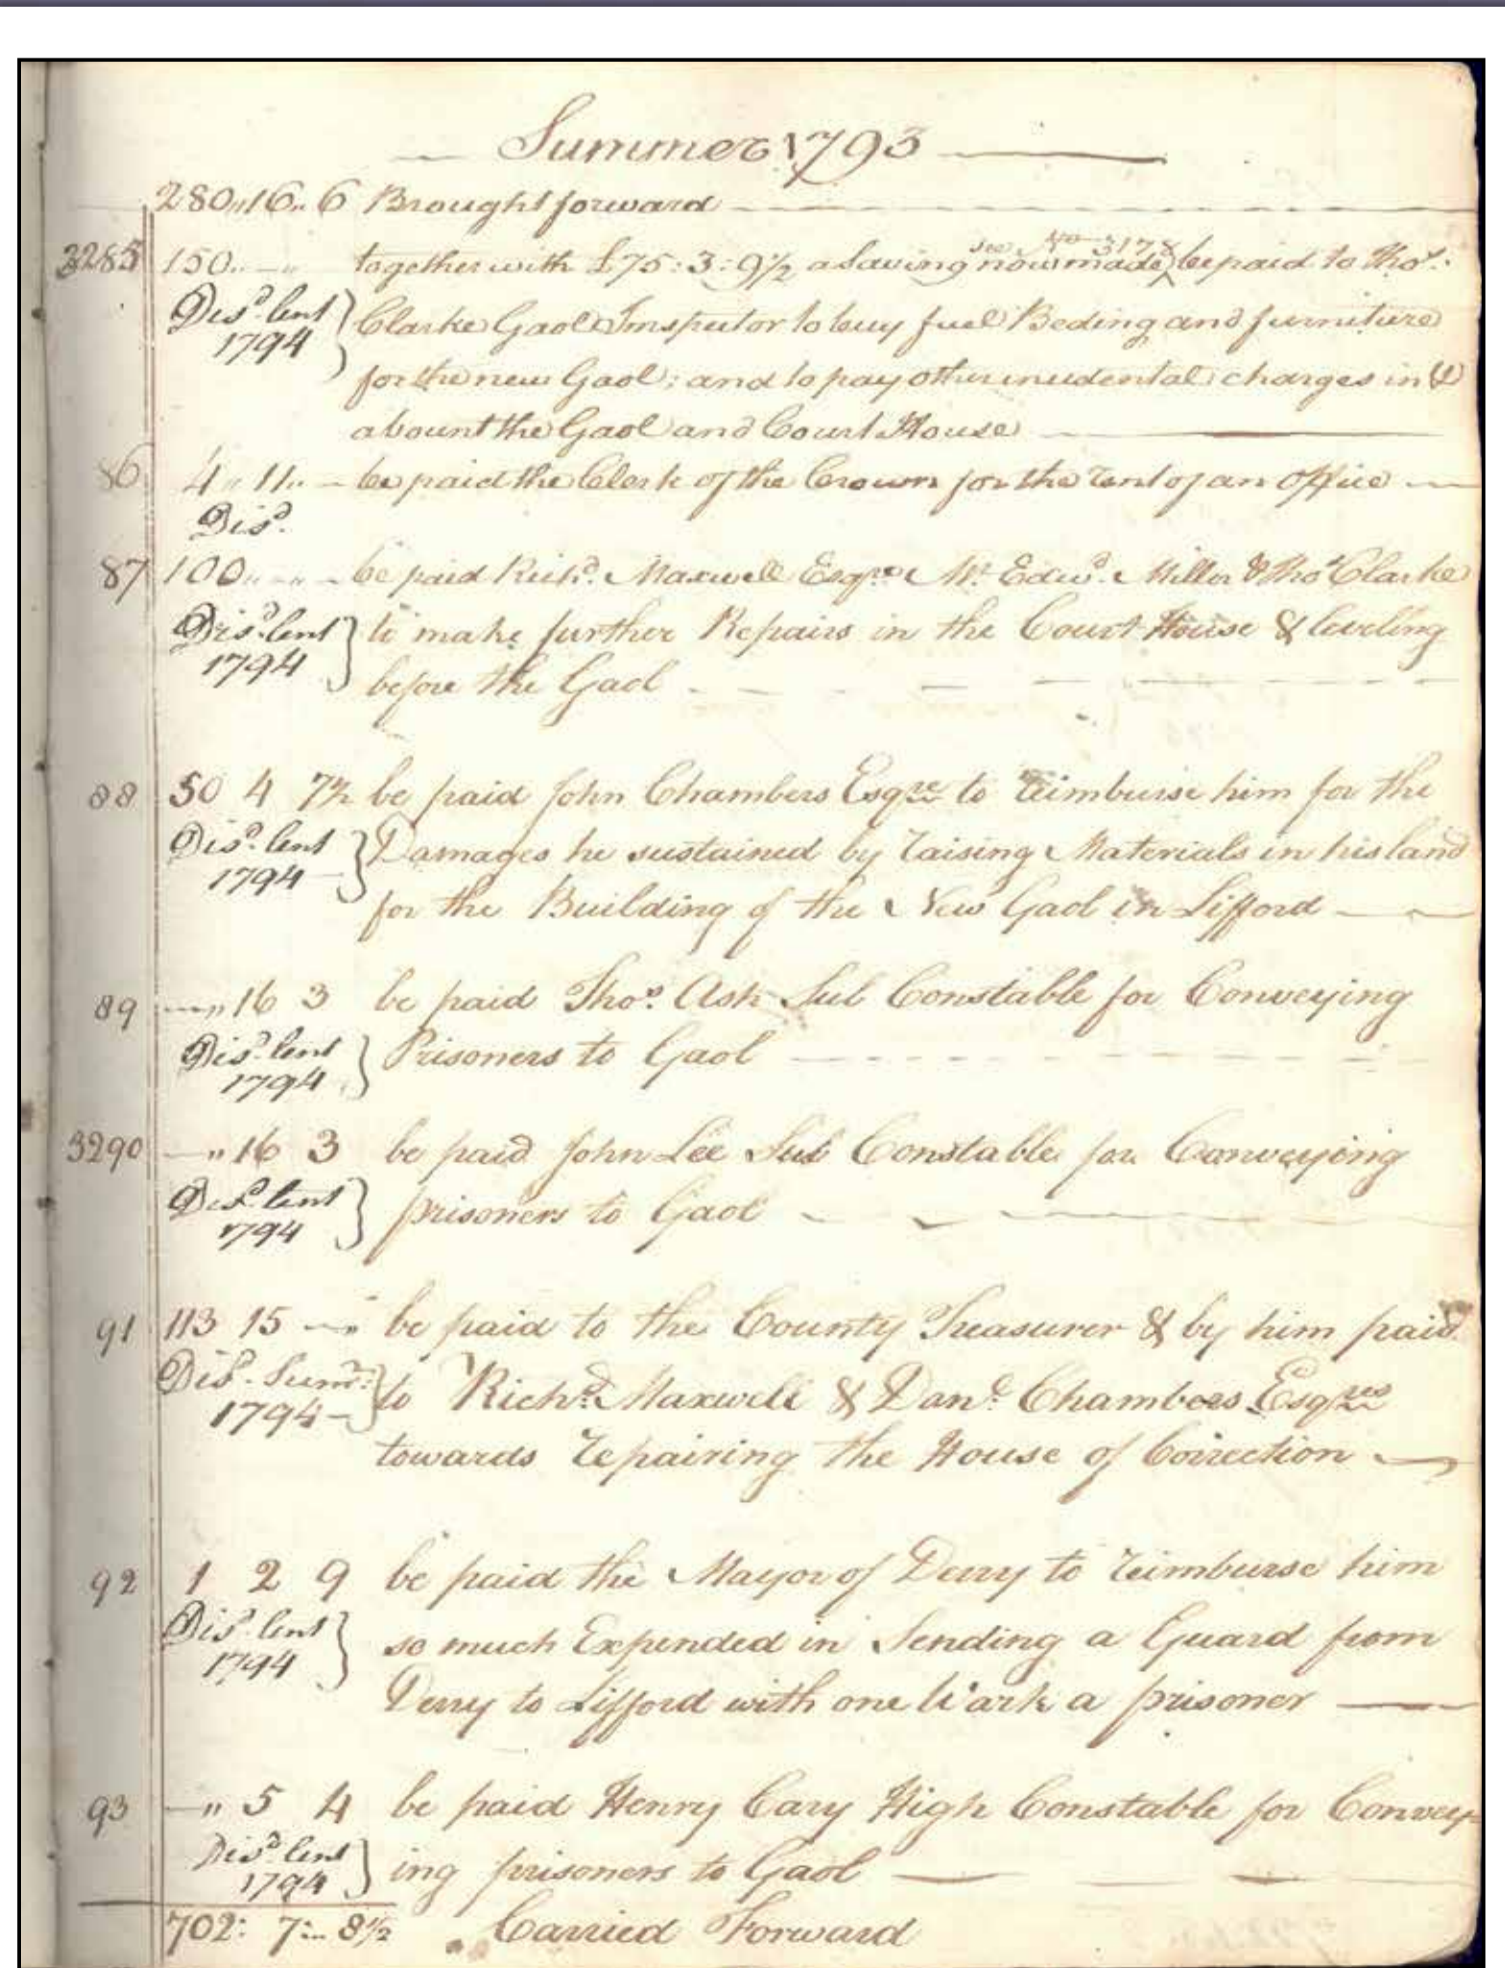 Summer 1793
280,,16,,6 Brought forward
3285 150,, — ,, together with £75:3:9½ a Saving now made see No 3178 be paid to Thos.
Disd. lent Clarke Gaol Inspector to buy fuel Beding and furniture
1794
for the new Gaol; and to pay other incidental charges in &
abount the Gaol and Court House
86 4,, 11,, — be paid the Clerk of the Crown for the rent of an Office
Disd.
87 100,, — ,, — be paid Richd. Maxwell Esqre. Mr. Edwd. Miller & Thos Clarke
Disd. lent to make further Repairs in the Court House & leveling
1794
before the Gaol
88 50 4 7½ be paid John Chambers Esqre to reimburse him for the
Disd. lent Damages he sustained by raising Materials in his land
1794
for the Building of the New Gaol in Lifford
89 —,,16 3 be paid Thos. Ash Sub Constable for Conveying
Disd. lent Prisoners to Gaol
1794
3290 —,,16 3 be paid John Lee Sub Constable for Conveying
Disd. lent prisoners to Gaol
1794
91 113 15 —,, be paid to the County Treasurer & by him paid
Disd. Sumr. to Richd. Maxwell & Danl. Chambers Esqres
1794
towards repairing the House of Correction
92 1 2 9 be paid the Mayor of Derry to reimburse him
Disd. lent so much Expended in Sending a Guard from
1794
Derry to Lifford with one Wark a prisoner
93 —,, 5 4 be paid Henry Cary High Constable for Convey
Disd. lent ing prisoners to Gaol
1794
702: 7:.. 8½ Carried Forward